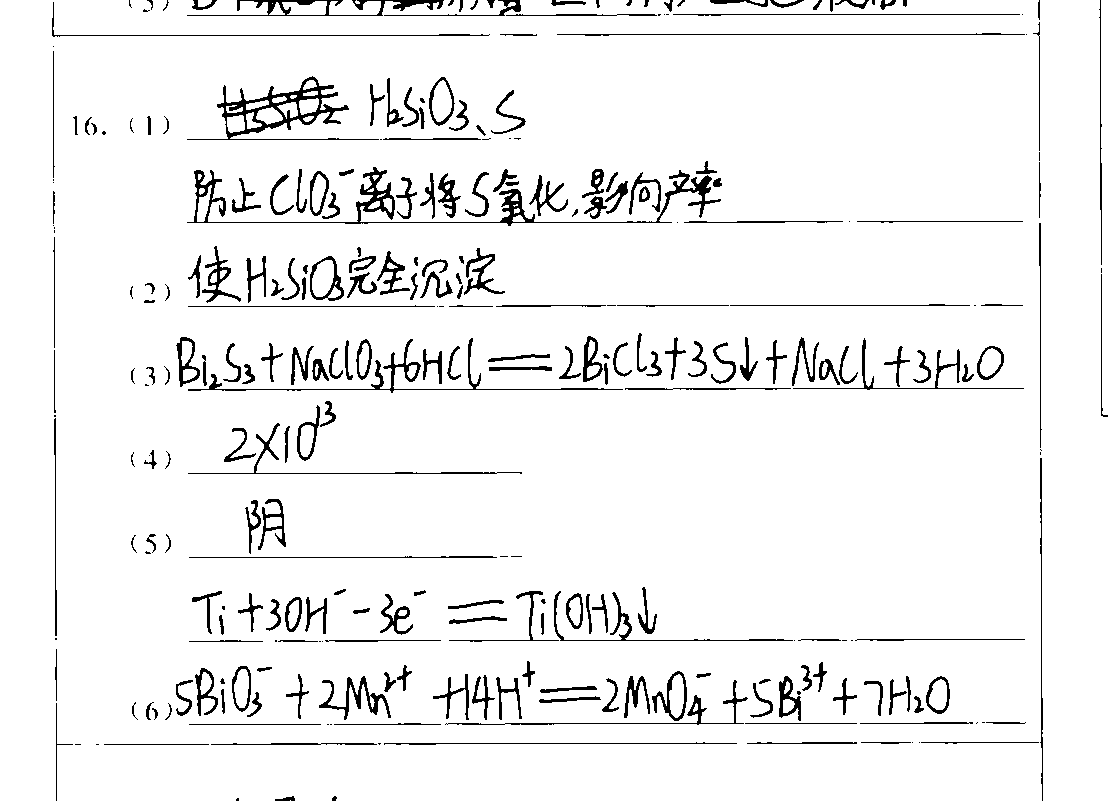 16. (1) H₂SiO₃、S
防止ClO₃⁻离子将S氧化,影响产率
(2) 使H₂SiO₃完全沉淀
(3) Bi₂S₃+NaClO₃+6HCl══2BiCl₃+3S↓+NaCl+3H₂O
(4) 2×10¹³
(5) 阴
Ti+3OH⁻-3e⁻══Ti(OH)₃↓
(6) 5BiO₃⁻+2Mn²⁺+14H⁺══2MnO₄⁻+5Bi³⁺+7H₂O